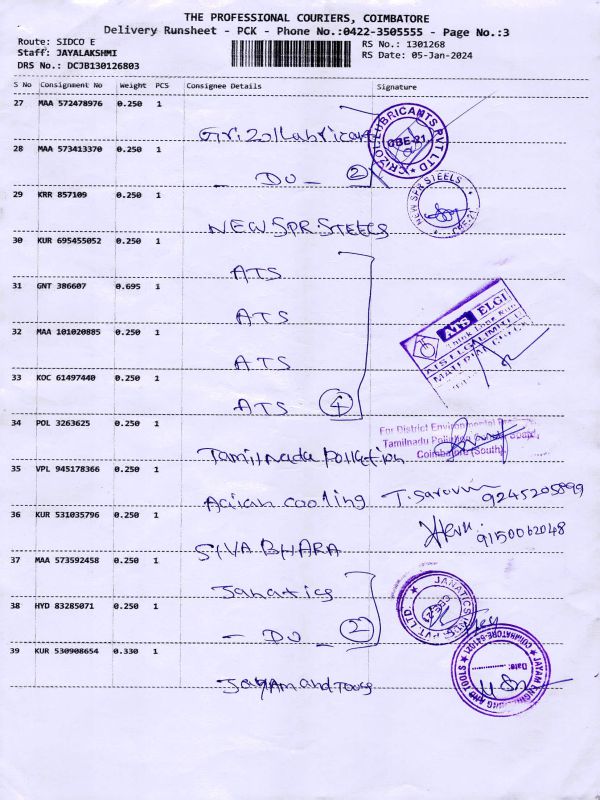 THE PROFESSIONAL COURIERS, COIMBATORE
Delivery Runsheet - PCK - Phone No.:0422-3505555 - Page No.:3
Route: SIDCO E
Staff: JAYALAKSHMI
DRS No.: DCJB130126803
RS No.: 1301268
RS Date: 05-Jan-2024
S No Consignment No Weight PCS Consignee Details Signature
27 MAA 572478976 0.250 1
Grizol Lubricans
GRIZOL LUBRICANTS PVT LTD
CBE-21
28 MAA 573413370 0.250 1
- Do - 2
29 KRR 857109 0.250 1
NEW SPR STEELS
NEW SPR STEELS
30 KUR 695455052 0.250 1
ATS
31 GNT 386607 0.695 1
ATS
32 MAA 101020885 0.250 1
ATS
ATS ELGI
ATS ELGI LIMITED
33 KOC 61497440 0.250 1
ATS 4
34 POL 3263625 0.250 1
Tamilnadu Pollution
For District Environmental
Tamilnadu Pollution Board,
Coimbatore (South).
35 VPL 945178366 0.250 1
cooling T. 9245205899
36 KUR 531035796 0.250 1
SIVA BHARA
9150062048
37 MAA 573592458 0.250 1
Janatics
JANATICS PVT LTD
38 HYD 83285071 0.250 1
- Do - 2
39 KUR 530908654 0.330 1
Jayam and Tools
JAYAM ENGINEERING AND TOOLS
COIMBATORE-641021
Date: